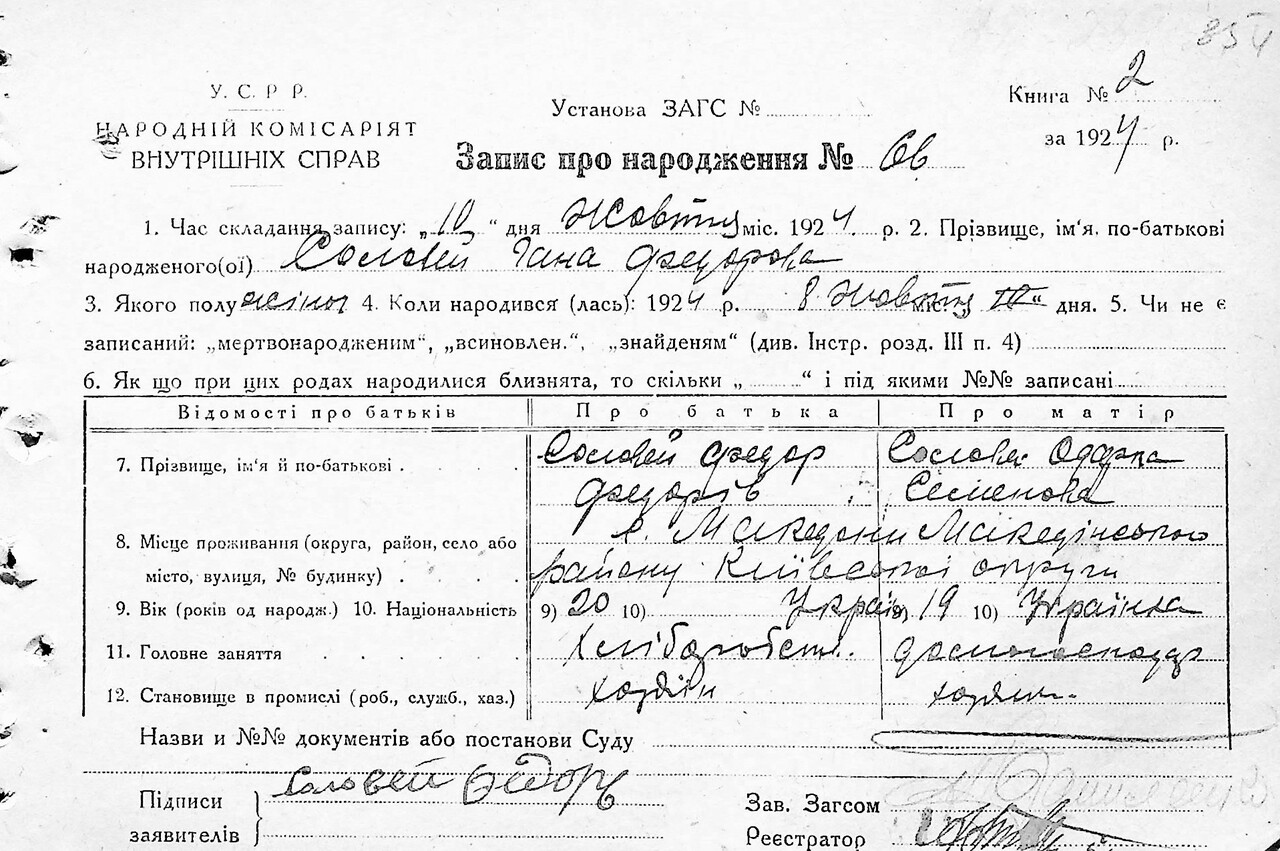 354
У. С. Р Р.
НАРОДНІЙ КОМІСАРІЯТ
ВНУТРІШНІХ СПРАВ
Установа ЗАГС №
Книга № 2
за 1924 р.
Запис про народження №
1. Час складання запису: „10“ дня Жовтня міс. 1924 р. 2. Прізвище, ім'я. по-батькові
народженого(ої) Соловей Ганна Федорова
3. Якого полу жіноч 4. Коли народився (лась): 1924 р. 8 Жовтня міс. дня. 5. Чи не є
записаний: „мертвонародженим“, „всиновлен.“, „знайденям“ (див. Інстр. розд. III п. 4)
6. Як що при цих родах народилися близнята, то скільки „ “ і під якими №№ записані
Відомості про батьків Про батька Про матір
7. Прізвище, ім'я й по-батькові . Соловей Федор Солове Одарка
Федорів Семенова
8. Місце проживання (округа, район, село або с. Македони Македінського
місто, вулиця, № будинку) . району Київської округи
9. Вік (років од народж.) 10. Національність 9) 20 10) Україн 9) 19 10) Українка
11. Головне заняття Хліборобств. домогосподар
12. Становище в промислі (роб., служб., хаз.) хазяїн
Назви и №№ документів або постанови Суду
Підписи Соловей Федорь
заявителів
Зав. Загсом
Реєстратор